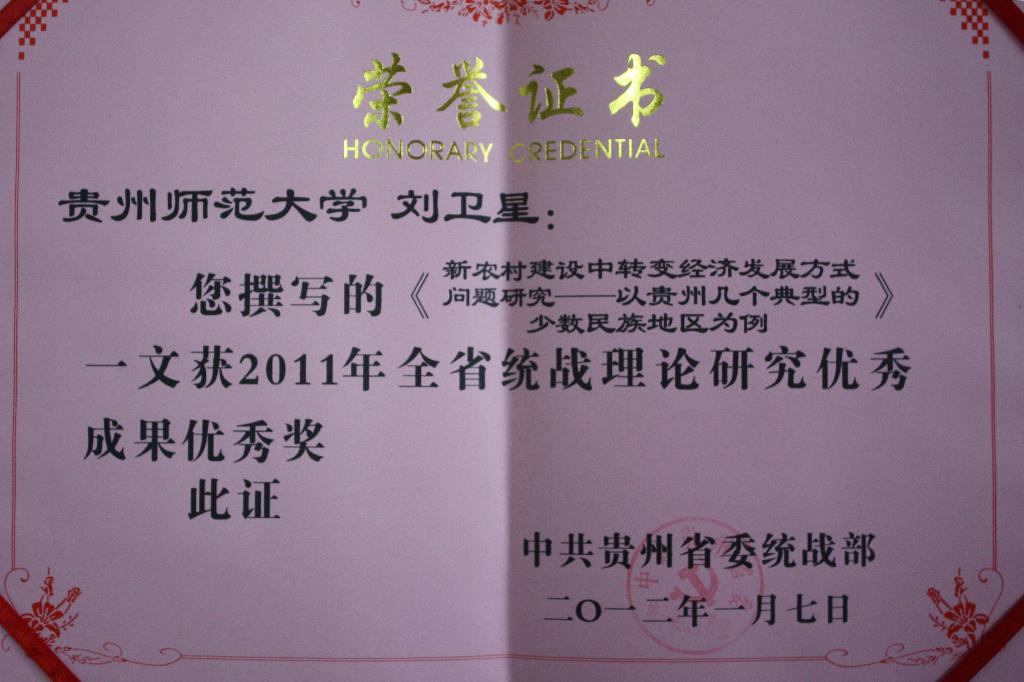 荣誉证书
HONORARY CREDENTIAL
贵州师范大学 刘卫星：
您撰写的《新农村建设中转变经济发展方式
问题研究——以贵州几个典型的
少数民族地区为例》
一文获2011年全省统战理论研究优秀
成果优秀奖
此证
中共贵州省委统战部
二〇一二年一月七日